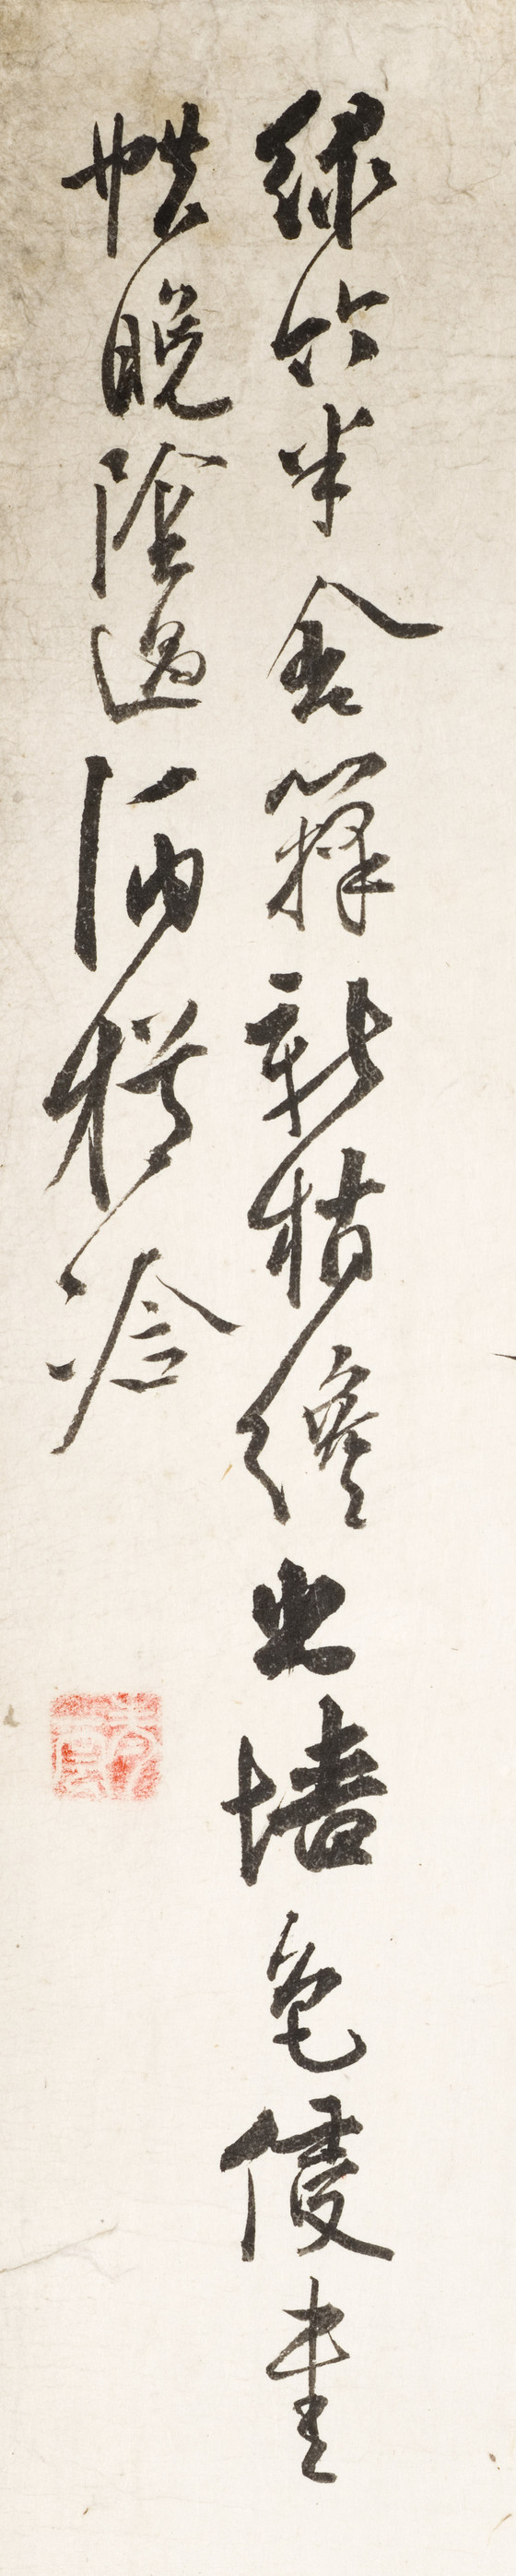 綠竹半含籜新梢纔出墻色侵書
帙晚陰過酒樽冷